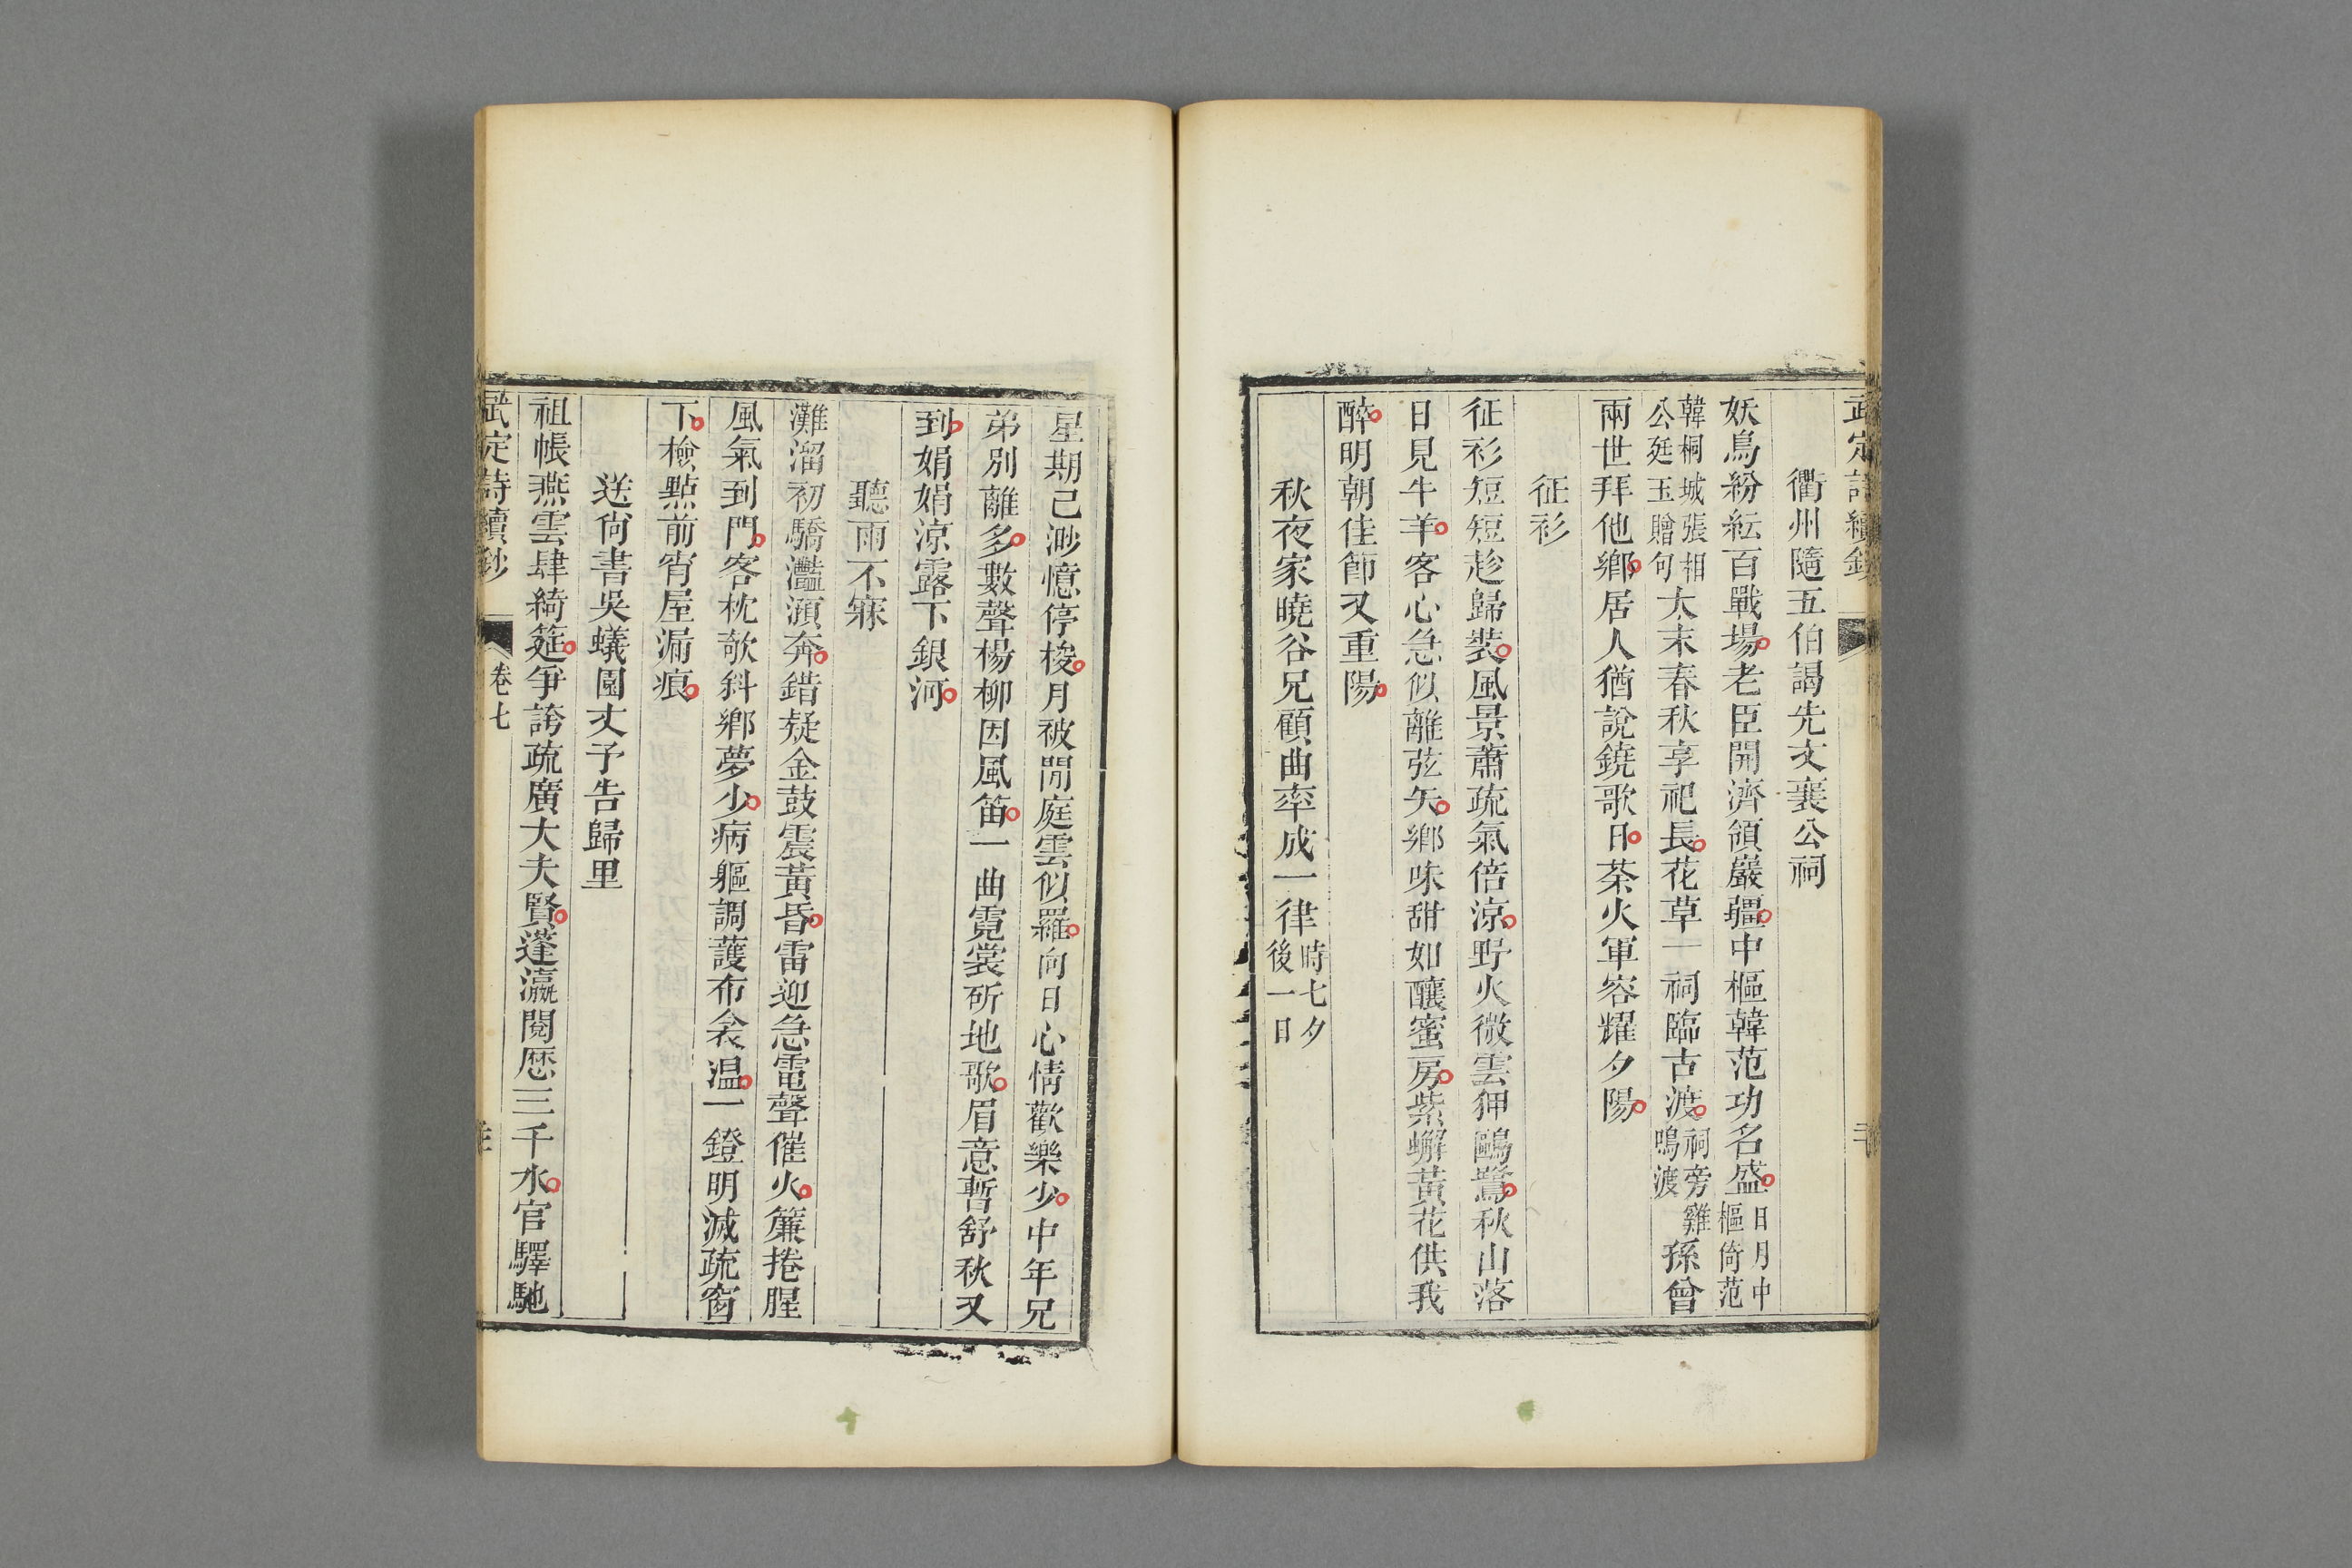 武定詩續鈔
衢州隨五伯謁先文襄公祠
妖鳥紛紜百戰場老臣開濟領巖疆中樞韓范功名盛日月中樞倚范
韓桐城張相公廷玉贈句太末春秋享祀長花草一祠臨古渡祠旁雞鳴渡孫曾
兩世拜他鄉居人猶說鐃歌日茶火軍容耀夕陽
征衫
征衫短短趁歸裝風景蕭疏氣倍涼野火微雲狎鷗鷺秋山落
日見牛羊客心急似離弦矢鄉味甜如釀蜜房紫蠏黃花供我
醉明朝佳節又重陽
秋夜家曉谷兄顧曲率成一律時七夕後一日
星期已渺憶停梭月被閒庭雲似羅向日心情歡樂少中年兄
弟別離多數聲楊柳因風笛一曲霓裳斫地歌眉意暫舒秋又
到娟娟涼露下銀河
聽雨不寐
灘溜初驕灎澦奔錯疑金鼓震黃昏雷迎急電聲催火簾捲腥
風氣到門客枕欹斜鄉夢少病軀調護布衾温一鐙明滅疏窗
下檢點前宵屋漏痕
送尙書吳蠖園丈予告歸里
祖帳燕雲肆綺筵爭誇疏廣大夫賢蓬瀛閱歴三千水官驛馳
武定詩續鈔 卷七